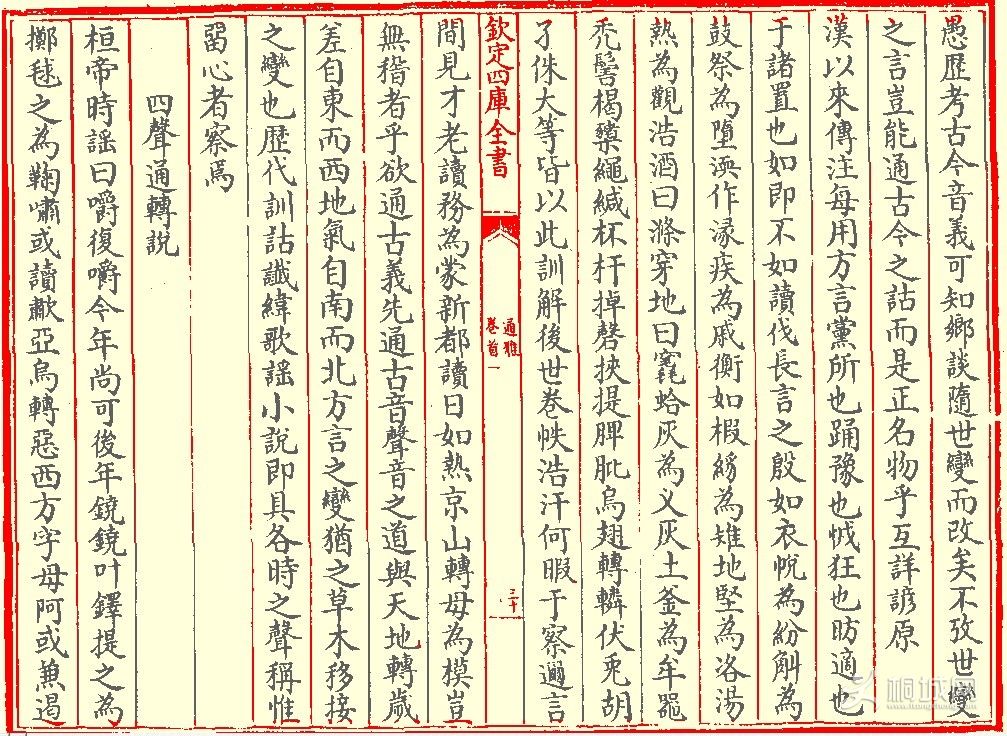 愚歴考古今音義可知鄉談隨世變而改矣不攷世變
之言豈能通古今之詁而是正名物乎互詳諺原
漢以來傳注每用方言黨所也踊豫也恎狂也昉適也
于諸置也如即不如讀伐長言之殷如衣帨為紛斛為
鼓祭為墮渜作湪疾為戚衡如椴綌為雉地堅為洛湯
熱為觀浩酒曰滌穿地曰竁蛤灰為义灰土釜為牟器
禿鬜楬蘽繩緘杯杅掉磬挾提脾肶烏翅轉轔伏兎胡
孑侏大等皆以此訓解後世巻帙浩汗何暇于察邇言
欽定四庫全書
通雅
巻首一
三十
間見才老讀務為蒙新都讀日如熱京山轉母為模豈
無稽者乎欲通古義先通古音聲音之道與天地轉歲
差自東而西地氣自南而北方言之變猶之草木移接
之變也歴代訓詁讖緯歌謡小說即具各時之聲稱惟
留心者察焉
四聲通轉說
桓帝時謡曰嚼復嚼今年尚可後年鐃鐃叶鐸提之為
擲毬之為鞠嘯或讀歗亞烏轉惡西方字母阿或兼遏
桐城网